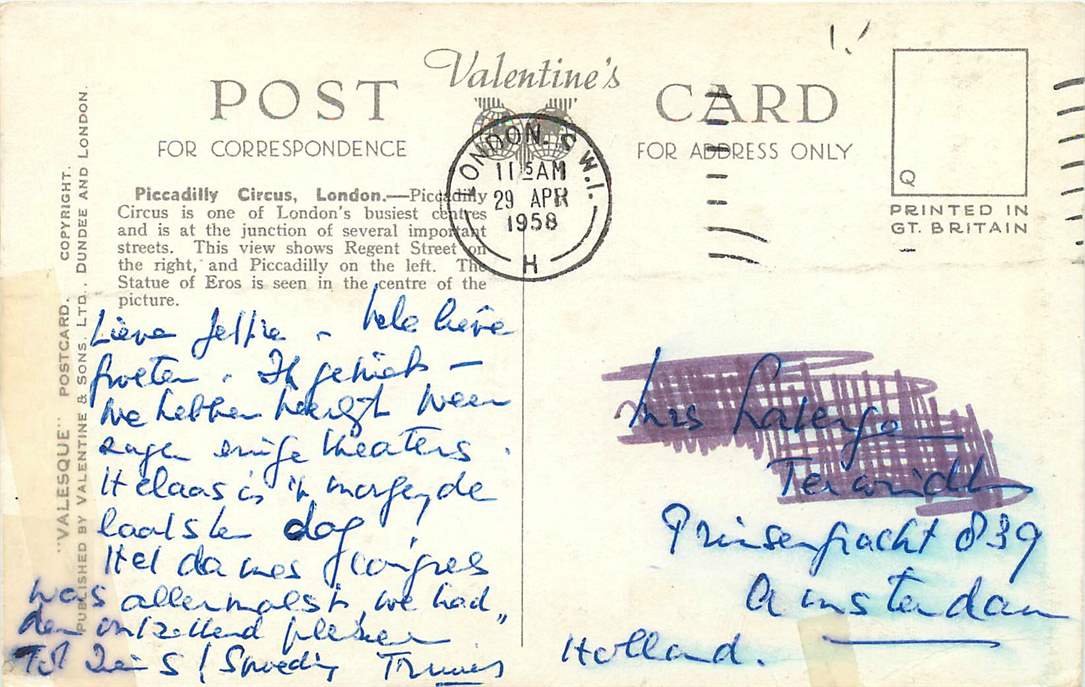 POST Valentine's CARD
FOR CORRESPONDENCE
FOR ADDRESS ONLY
LONDON. S.W.1.
11 15 AM
29 APR
1958
H
Q
PRINTED IN
GT. BRITAIN
"VALESQUE" POSTCARD. COPYRIGHT.
PUBLISHED BY VALENTINE & SONS, LTD., DUNDEE AND LONDON.
Piccadilly Circus, London.—Piccadilly
Circus is one of London's busiest centres
and is at the junction of several important
streets. This view shows Regent Street on
the right, and Piccadilly on the left. The
Statue of Eros is seen in the centre of the
picture.
Lieve Jettie - Vele lieve
groeten. Ik geniet —
we hebben heerlijk weer
zagen enige theaters.
Helaas is 't morgen de
laatste dag,
Het dames congres
was allermalst, we had"
den ontzettend plezier
Tot ziens! Spoedig Truus
Mrs
Prinsengracht 839
Amsterdam
Holland.